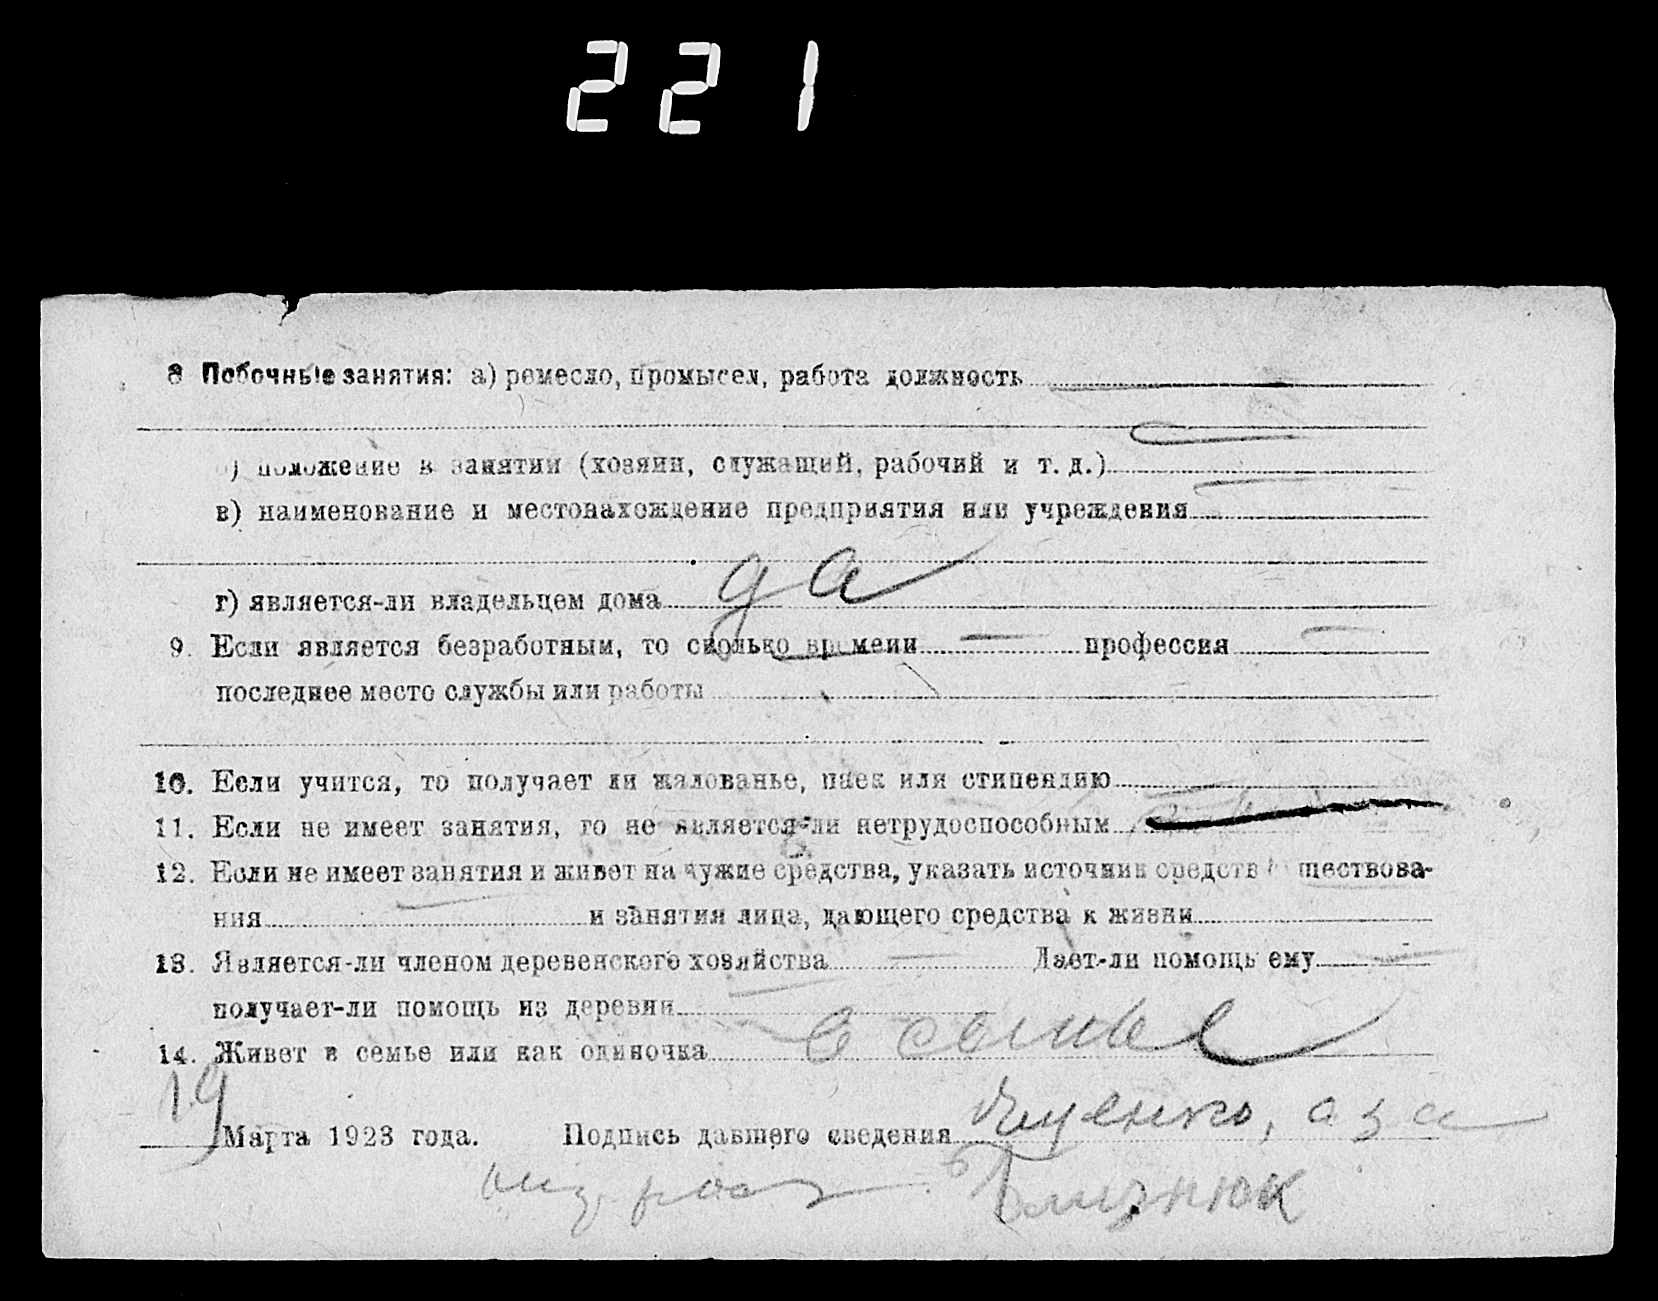 221
8 Побочные занятия: а) ремесло, промысел, работа должность
б) положение в занятии (хозяин, служащий, рабочий и т. д.)
в) наименование и местонахождение предприятия или учреждения
г) является-ли владельцем дома да
9. Если является безработным, то сколько времени — профессия —
последнее место службы или работы
10. Если учится, то получает ли жалованье, паек или стипендию
11. Если не имеет занятия, то не является-ли нетрудоспособным
12. Если не имеет занятия и живет на чужие средства, указать источник средств существова-
ния и занятия лица, дающего средства к жизни
13. Является-ли членом деревенского хозяйства — Дает-ли помощь ему —
получает-ли помощь из деревни
14. Живет в семье или как одиночка в семье
19 Марта 1923 года. Подпись давшего сведения Яценко, а за
Близнюк